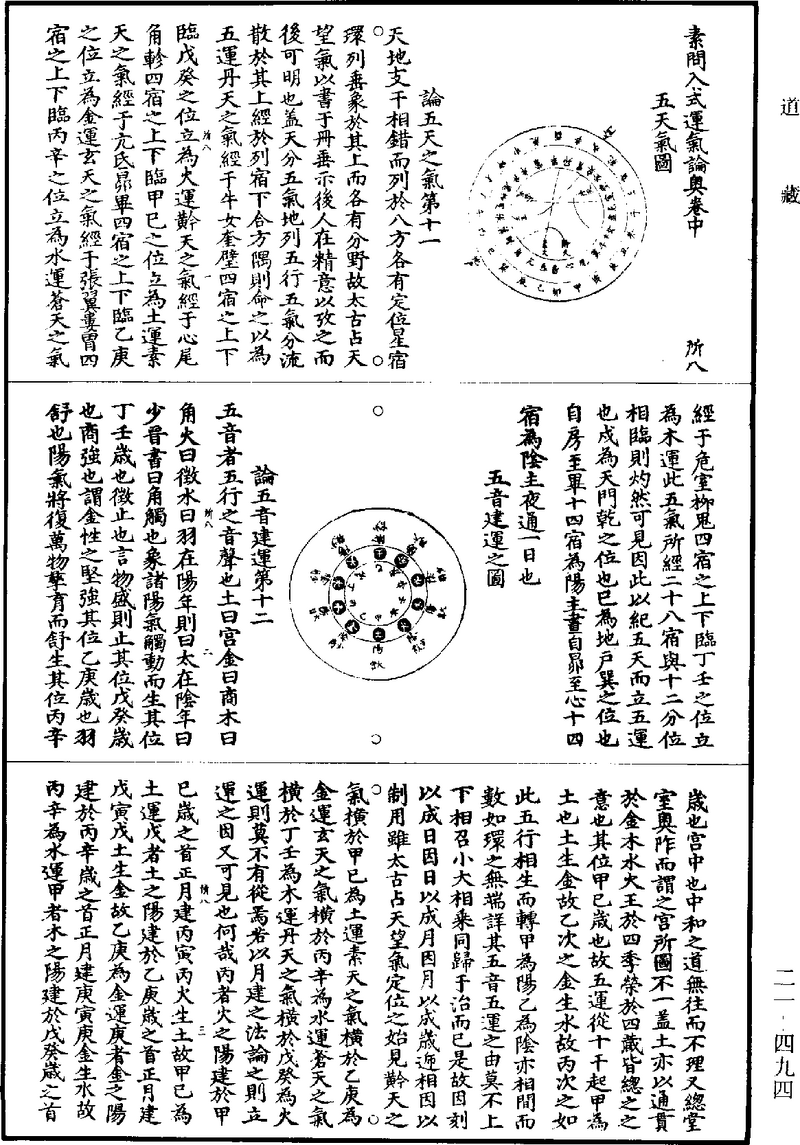 道藏
素問入式運氣論奧卷中
所八
五天氣圖
論五天之氣第十一
天地支干相錯而列於八方各有定位星宿
環列垂象於其上而各有分野故太古占天
望氣以書于冊垂示後人在精意以攷之而
後可明也蓋天分五氣地列五行五氣分流
散於其上經於列宿下合方隅則命之以為
五運丹天之氣經于牛女奎壁四宿之上下
所八 一
臨戊癸之位立為火運黅天之氣經于心尾
角軫四宿之上下臨甲己之位立為土運素
天之氣經于亢氐昴畢四宿之上下臨乙庚
之位立為金運玄天之氣經于張翼婁胃四
宿之上下臨丙辛之位立為水運蒼天之氣
經于危室柳鬼四宿之上下臨丁壬之位立
為木運此五氣所經二十八宿與十二分位
相臨則灼然可見因此以紀五天而立五運
也戌為天門乾之位也巳為地戶巽之位也
自房至畢十四宿為陽主晝自昴至心十四
宿為陰主夜通一日也
五音建運之圖
論五音建運第十二
五音者五行之音聲也土曰宮金曰商木曰
角火曰徵水曰羽在陽年則曰太在陰年曰
所八 二
少晉書曰角觸也象諸陽氣觸動而生其位
丁壬歲也徵止也言物盛則止其位戊癸歲
也商強也謂金性之堅強其位乙庚歲也羽
舒也陽氣將復萬物孳育而舒生其位丙辛
歲也宮中也中和之道無往而不理又總堂
室奧阼而謂之宮所圖不一蓋土亦以通貫
於金木水火王於四季榮於四藏皆總之之
意也其位甲己歲也故五運從十干起甲為
土也土生金故乙次之金生水故丙次之如
此五行相生而轉甲為陽乙為陰亦相間而
數如環之無端詳其五音五運之由莫不上
下相召小大相乘同歸于治而已是故因刻
以成日因日以成月因月以成歲遞相因以
制用雖太古占天望氣定位之始見黅天之
氣橫於甲己為土運素天之氣橫於乙庚為
金運玄天之氣橫於丙辛為水運蒼天之氣
橫於丁壬為木運丹天之氣橫於戊癸為火
運則莫不有從焉若以月建之法論之則立
運之因又可見也何哉丙者火之陽建於甲
所八 三
己歲之首正月建丙寅丙火生土故甲己為
土運戊者土之陽建於乙庚歲之首正月建
戊寅戊土生金故乙庚為金運庚者金之陽
建於丙辛歲之首正月建庚寅庚金生水故
丙辛為水運甲者木之陽建於戊癸歲之首
二一·四九四